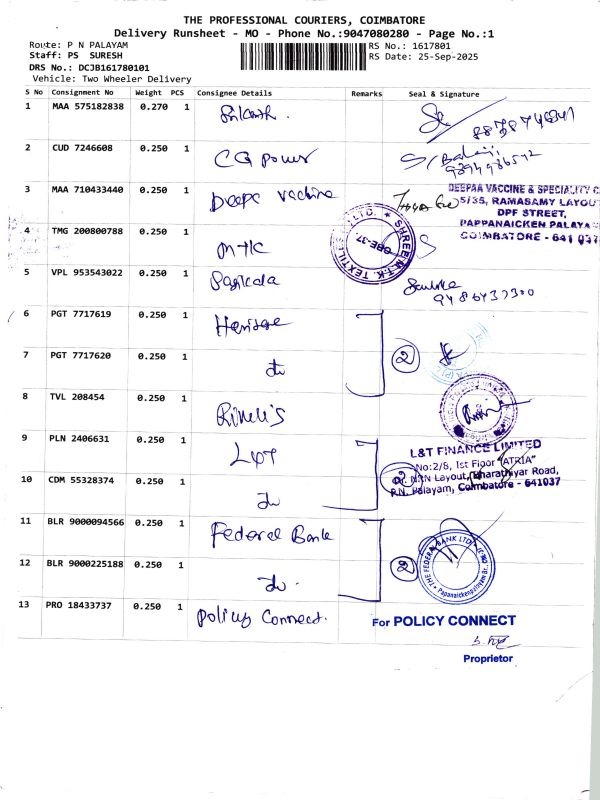 THE PROFESSIONAL COURIERS, COIMBATORE
Delivery Runsheet - MO - Phone No.:9047080280 - Page No.:1
Route: P N PALAYAM
Staff: PS SURESH
DRS No.: DCJB161780101
Vehicle: Two Wheeler Delivery
RS No.: 1617801
RS Date: 25-Sep-2025
S No Consignment No Weight PCS Consignee Details Remarks Seal & Signature
1 MAA 575182838 0.270 1
2 CUD 7246608 0.250 1 CG power
3 MAA 710433440 0.250 1 Deepa vaccine
DEEPAA VACCINE & SPECIALITY C
5/35, RAMASAMY LAYOU
DPF STREET,
PAPPANAICKEN PALAYA
COIMBATORE - 641 037
4 TMG 200800788 0.250 1 MTK
SHREE M.T.K. TEXTILES (P) LTD.
CBE-37
5 VPL 953543022 0.250 1 Sasikala
9486437300
6 PGT 7717619 0.250 1 Heritage
7 PGT 7717620 0.250 1 do
2
8 TVL 208454 0.250 1
9 PLN 2406631 0.250 1 L&T
L&T FINANCE LIMITED
No:2/8, Ist Floor "ATRIA"
NRN Layout, Bharathiyar Road,
P.N. Palayam, Coimbatore - 641037
10 CDM 55328374 0.250 1 do
2
11 BLR 9000094566 0.250 1 Federal Bank
12 BLR 9000225188 0.250 1 do.
2
THE FEDERAL BANK LTD.
Papanaickenpalayam Br.
13 PRO 18433737 0.250 1 Policy Connect.
For POLICY CONNECT
Proprietor